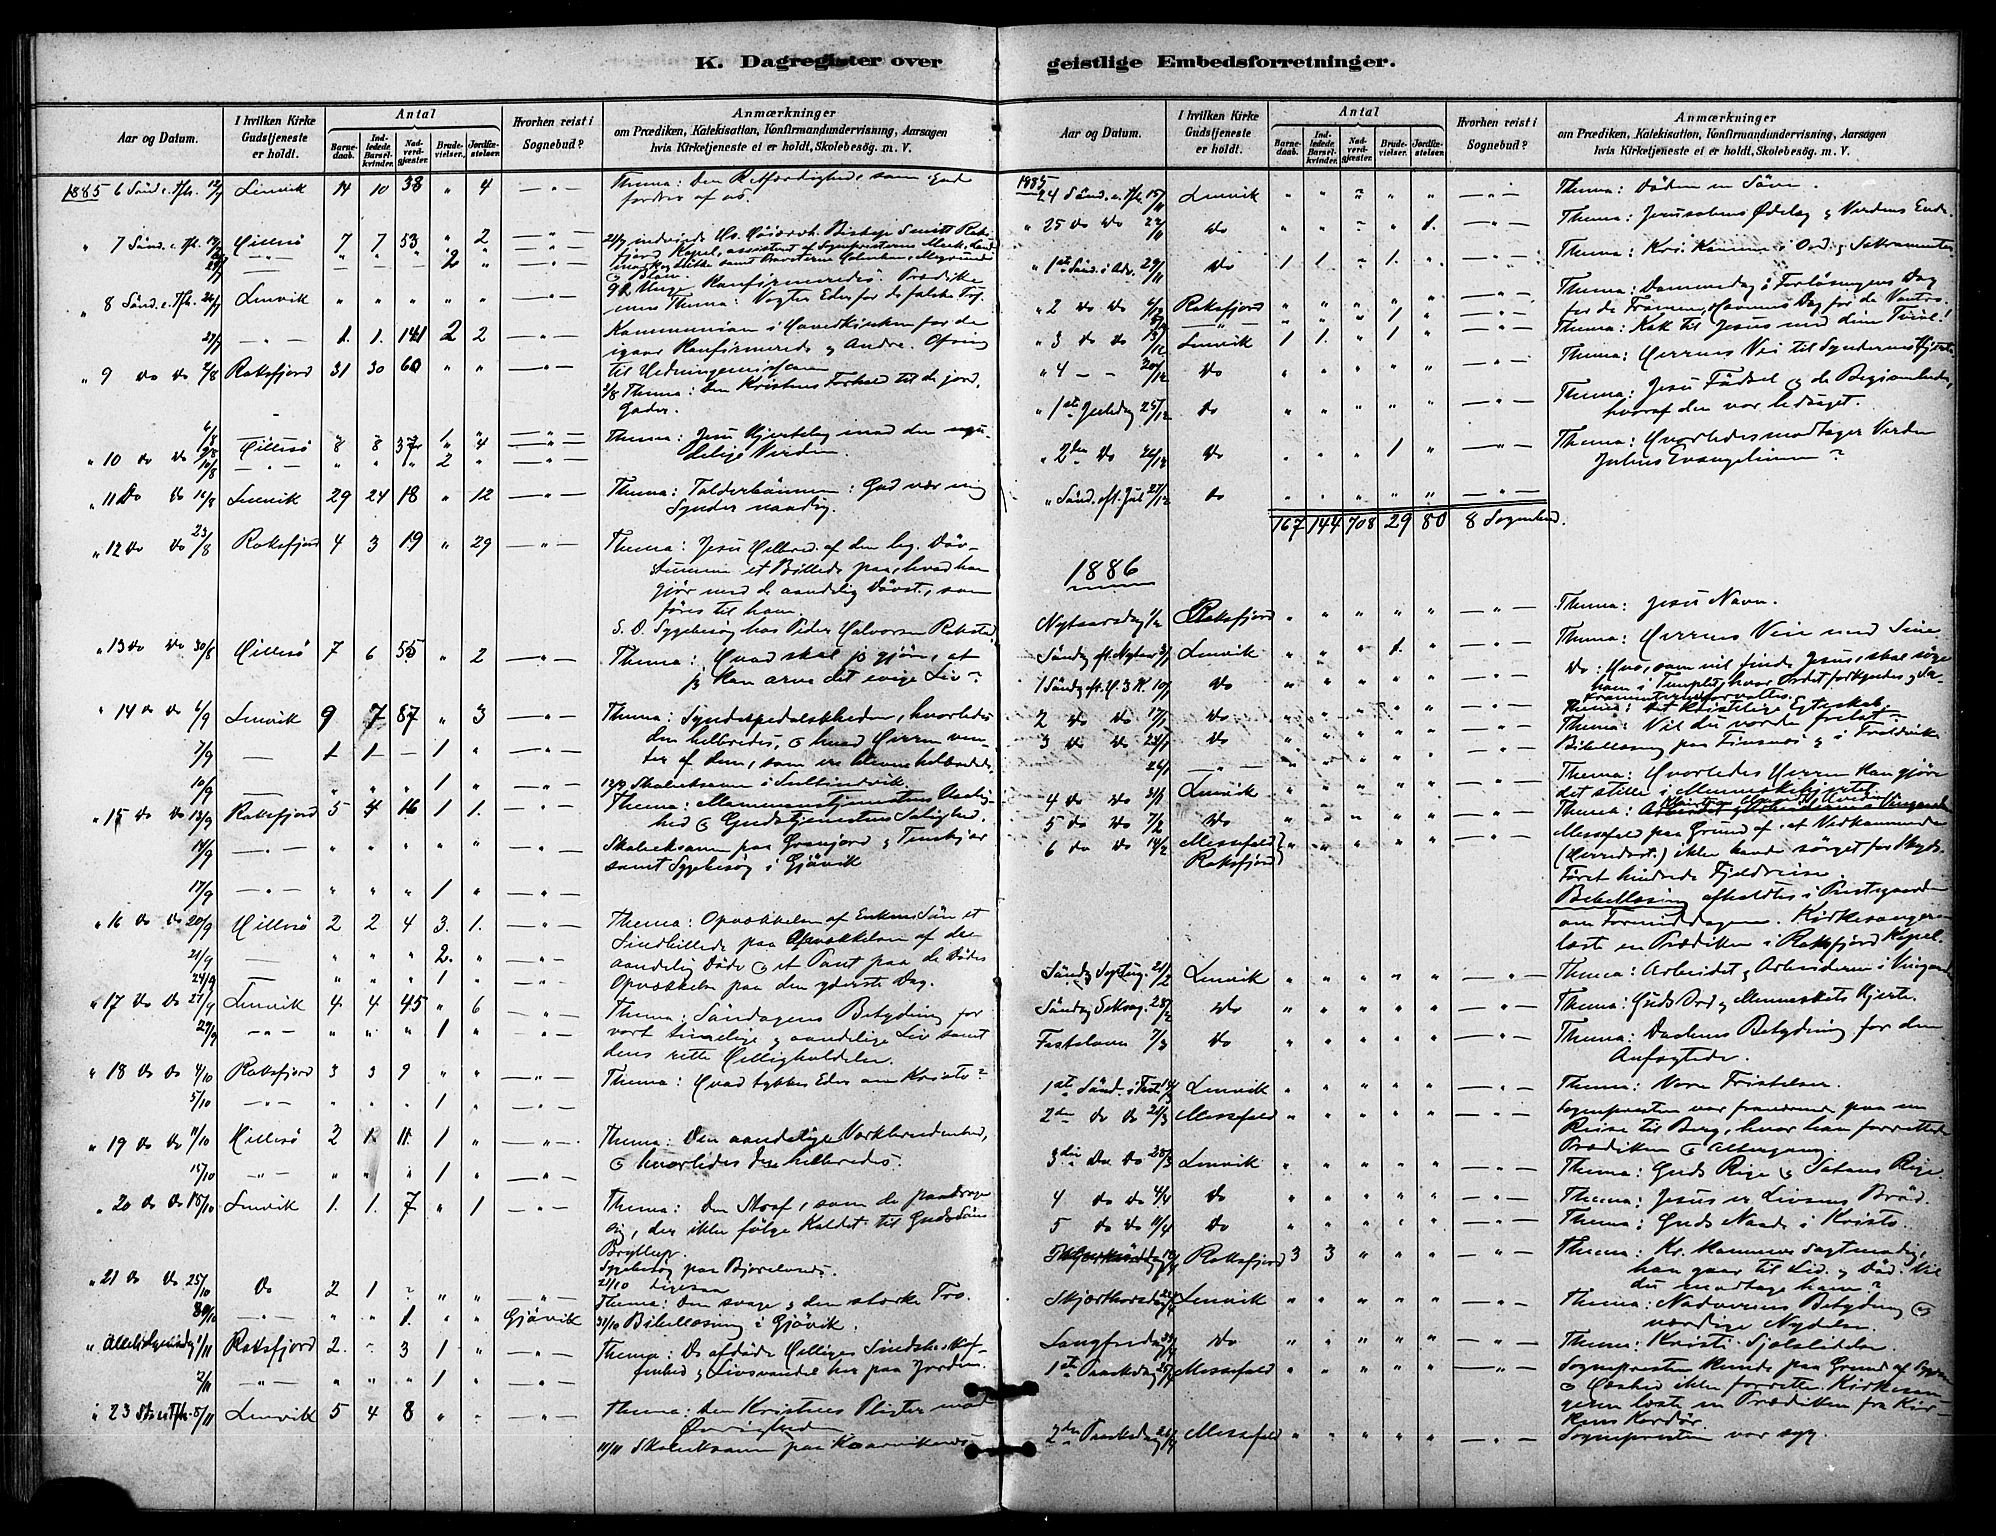 K. Dagregister over geistlige Embedsforretninger.
Aar og Datum.
I hvilken Kirke Gudstjeneste er holdt.
Antal
Barnedaab.
Indledede Barselkvinder.
Nadverdgjæster.
Brudevielser.
Jordfæstelser.
Hvorhen reist i Sognebud?
Anmærkninger
om Prædiken, Katekisation, Konfirmandundervisning, Aarsagen
hvis Kirketjeneste ei er holdt, Skolebesøg. m. V.
1885 6 Sønd. e. Tr. 12/7 Lenvik 14 10 38 " 4 — " — Thema: Den Retfærdighed, som Gud
fordrer af os.
" 7 Sønd. e. Tr. 19/7 Hillesø 7 7 53 " 2 — " —
— " — — — — 2 " — " —
8 Sønd. e. Tr. 26/7 Lenvik " " " " " — " — Thema: Vogter Eder for de falske
27/7 — " — 1. 1. 141 2 2 — " — Kommunion i Hovedkirken for de
igaar Konfirmerede og Andre. Ofring
til Hedningemissionen
" 9 do do 2/8 Roksfjord 31 30 60 " " — " — 2/8 Thema: Den Kristnes Forhold til de jord.
Goder.
" 10 do do 9/8 Hillesø 8 8 37 " 4 — " — Thema: Jesu Hjertelag mod den ugudelige Verden.
10/8 — " — " " " 2 " — " —
" 11 Do do 16/8 Lenvik 29 24 18 " 12 — " — Thema: Tolderbønnen: Gud vær mig
Synder naadig.
" 12 Do do 23/8 Roksfjord 4 3 19 " 29 — " — Thema: Jesu Helbred. af den leg. Døvstumme et Billede paa, hvad han
gjør med de aandelig Døvst., som
føres til ham.
S. D. Sygebesøg hos Peder Halvorsen
" 13 do do 30/8 Hillesø 7 6 55 " 2 — " — Thema: Hvad skal jeg gjøre, at
jeg kan arve det evige Liv?
" 14 do do 6/9 Lenvik 9 7 87 " 3 — " — Thema: Syndespedalskheden, hvorledes
den helbredes, og hvad Herren venter af dem, som ere blevne helbredede.
7/9 — 1 1 — 1 " — " —
10/9 — " " " 1 " — " — Skoleeksamen i
" 15 do do 13/9 Roksfjord 5 4 16 1 1. — " — Thema: Mammonstjenestens
og Gudstjenestens Salighed.
14/9 — " — " " " " " — " — Skoleeksamen paa Grønjord og
samt Sygebesøg i Gjøvik
17/9 — " — " " " 1 " — " —
" 16 do do 20/9 Hillesø 2 2 4 3. 1. — " — Thema: Opvækkelsen af Enkens Søn et
Sindbillede paa Opvækkelsen af de
aandelig Døde og et Pant paa de Dødes
Opvækkelse paa den yderste Dag.
21/9 — " " " 2. " — " —
24/9 — " " " 1 " — " —
" 17 do do 27/9 Lenvik 4 4 45 " 6 — " — Thema: Søndagens Betydning for
vort timelige og aandelige Liv samt
dens rette Helligholdelse.
29/9 — " — " " " 1 " — " —
" 18 do do 4/10 Roksfjord 3 3 9 " " — " — Thema: Hvad tykkes Eder om Kristo?
5/10 — " — " " " 1 " — " —
" 19 do do 11/10 Hillesø 2 1. 11. 1 " — " — Thema: Den aandelige Værkbrudenhed,
og hvorledes den helbredes.
— " — " " " 1 " — " —
" 20 do do 18/10 Lenvik 1. 1. 7 " 1 — " — Thema: Den Straf, som de paadrage
sig, der ikke følge Kaldet til Guds Søns
Bryllup.
Sygebesøg paa
" 21 do do 25/10 Do 2 1 " " — " — Thema: Den svage og den stærke Tro.
— " — " " 1. " " Gjøvik 31/10 Bibellæsning i Gjøvik.
1/11 Roksfjord 2. - 3 1 " — " — Thema: De afdøde Helliges
og Livsvandel her paa Jorden.
2/11 — " — " " " 1 " — " —
" 23 8/11 Lenvik 5 4 8 " - — " — Thema: Den Kristnes Pligter mod
Øvrigheden
11/11 Skoleeksamen paa
1885
24 Sønd. e. Tr. 15/11 Lenvik " " " " " — " — Thema: Døden en Søvn.
" 25 do do 22/11 do " " " " 1. — " — Thema: Jerusalems Ødelæg. og Verdens Ende.
" 1ste Sønd. i Adv. 29/11 do 1 1 " 1. " — " — Thema: Kri. Komme i Ord og Sakramenter
" 2 do do 6/12 Roksfjord " " " " " — " — Thema: Dommedag, Forløsningens Dag
for de Fromme, Dag for de Vantro.
" 3 do do 13/12 Lenvik 1 1. " 1 " — " — Thema: Kom til Jesus med dine Tvivl!
" 4 - - 20/12 do " " " " " — " — Thema: Herrens Vei til Syndernes Hjerte
" 1ste Juledag 25/12 do " " " " " — " — Thema: Jesu Fødsel og de Begivenheder,
hvoraf den var ledsaget.
" 2den do 26/12 do " " " 1 " — " — Thema: Hvorledes modtager Verden
Julens Evangelium?
" Sønd. eft. Jul 27/12 do " " " " " — " —
167 144 708 29 80 8 Sognebud.
1886
Nytaarsdag 1/1 Roksfjord " " " " " — " — Thema: Jesu Navn.
Søndag eft. Nytaar 3/1 Lenvik " " " 1. " — " — Thema: Herrens Veie med Sine
1 Søndg eft. H. 3 K. 10/1 do " " " " " — " — Do: Hvo, som vil finde Jesus, skal søge
ham i Templet, hvor Ordet forkyndes og Sakramenterne forvaltes.
2 do do 17/1 do " " " " " — " — Thema: Det kristelige Egteskab.
3 do do 24/1 do " " " " " — " — Thema: Vil du vorde frelst?
26/1 — " — " " " " " — " — Bibellæsning paa Finsnes og i
4 do do 31/1 Lenvik " " " " " — " — Thema: Hvorledes Herren kan gjøre
det stille i Menneskehjertet.
5 do do 7/2 do " " " " " — " — Thema:
6 do do 14/2 Messefald Roksfjord " " " " " — " — Messefald paa Grund af, at Vedkommende
(Herredsst.) ikke havde sørget for Skyds.
Føret hindrede Fjeldreise.
Bibellæsning afholdtes i Præstegaarden
om Formiddagen. Kirkesangeren
læste en Prædiken i Roksfjord Kapel.
Søndag Septuag. 21/2 Lenvik " " " " " — " — Thema: Arbeidet og Arbeiderne i Vingaarden
Søndag Seksag. 28/2 do " " " " " — " — Thema: Guds Ord og Menneskets Hjerte.
Fastelavn 7/3 do " " " " " — " — Thema: Daabens Betydning for den
Anfægtede.
1ste Sønd. i Fast. 14/3 Lenvik " " " " " — " — Thema: Vore Fristelser.
2den do do 21/3 Messefald " " " " " — " — Sognepresten var fraværende paa en
Reise til Berg, hvor han forrettede
Prædiken og Altergang.
3die Do do 28/3 Lenvik " " " " " — " — Thema: Guds Rige og Satans Rige
4 do do 4/4 do " " " " " — " — Thema: Jesus er Livsens Brød.
5 do do 11/4 do " " " " " — " — Thema: Guds Naade i Kristo.
Roksfjord 3 3 " " " — " — Thema: Kr. kommer sagtmodig,
han gaar til Lid. og Død. Vil
du modtage ham?
Skjærthorsdag 22/4 Lenvik " " " " " — " — Thema: Nadverens Betydning og
værdige Nydelse.
Langfredag 23/4 do " " " " " — " — Thema: Kristi Sjælslidelse.
1ste Paaskedag 25/4 Messefald " " " " " — " — Sognepresten kunde paa Grund af Sygdom
og Hæshed ikke forrette. Kirkesangeren læste en Prædiken fra Kirkens Kordør.
2den Paaskedag 26/4 Messefald " " " " " — " — Sognepresten var syg.